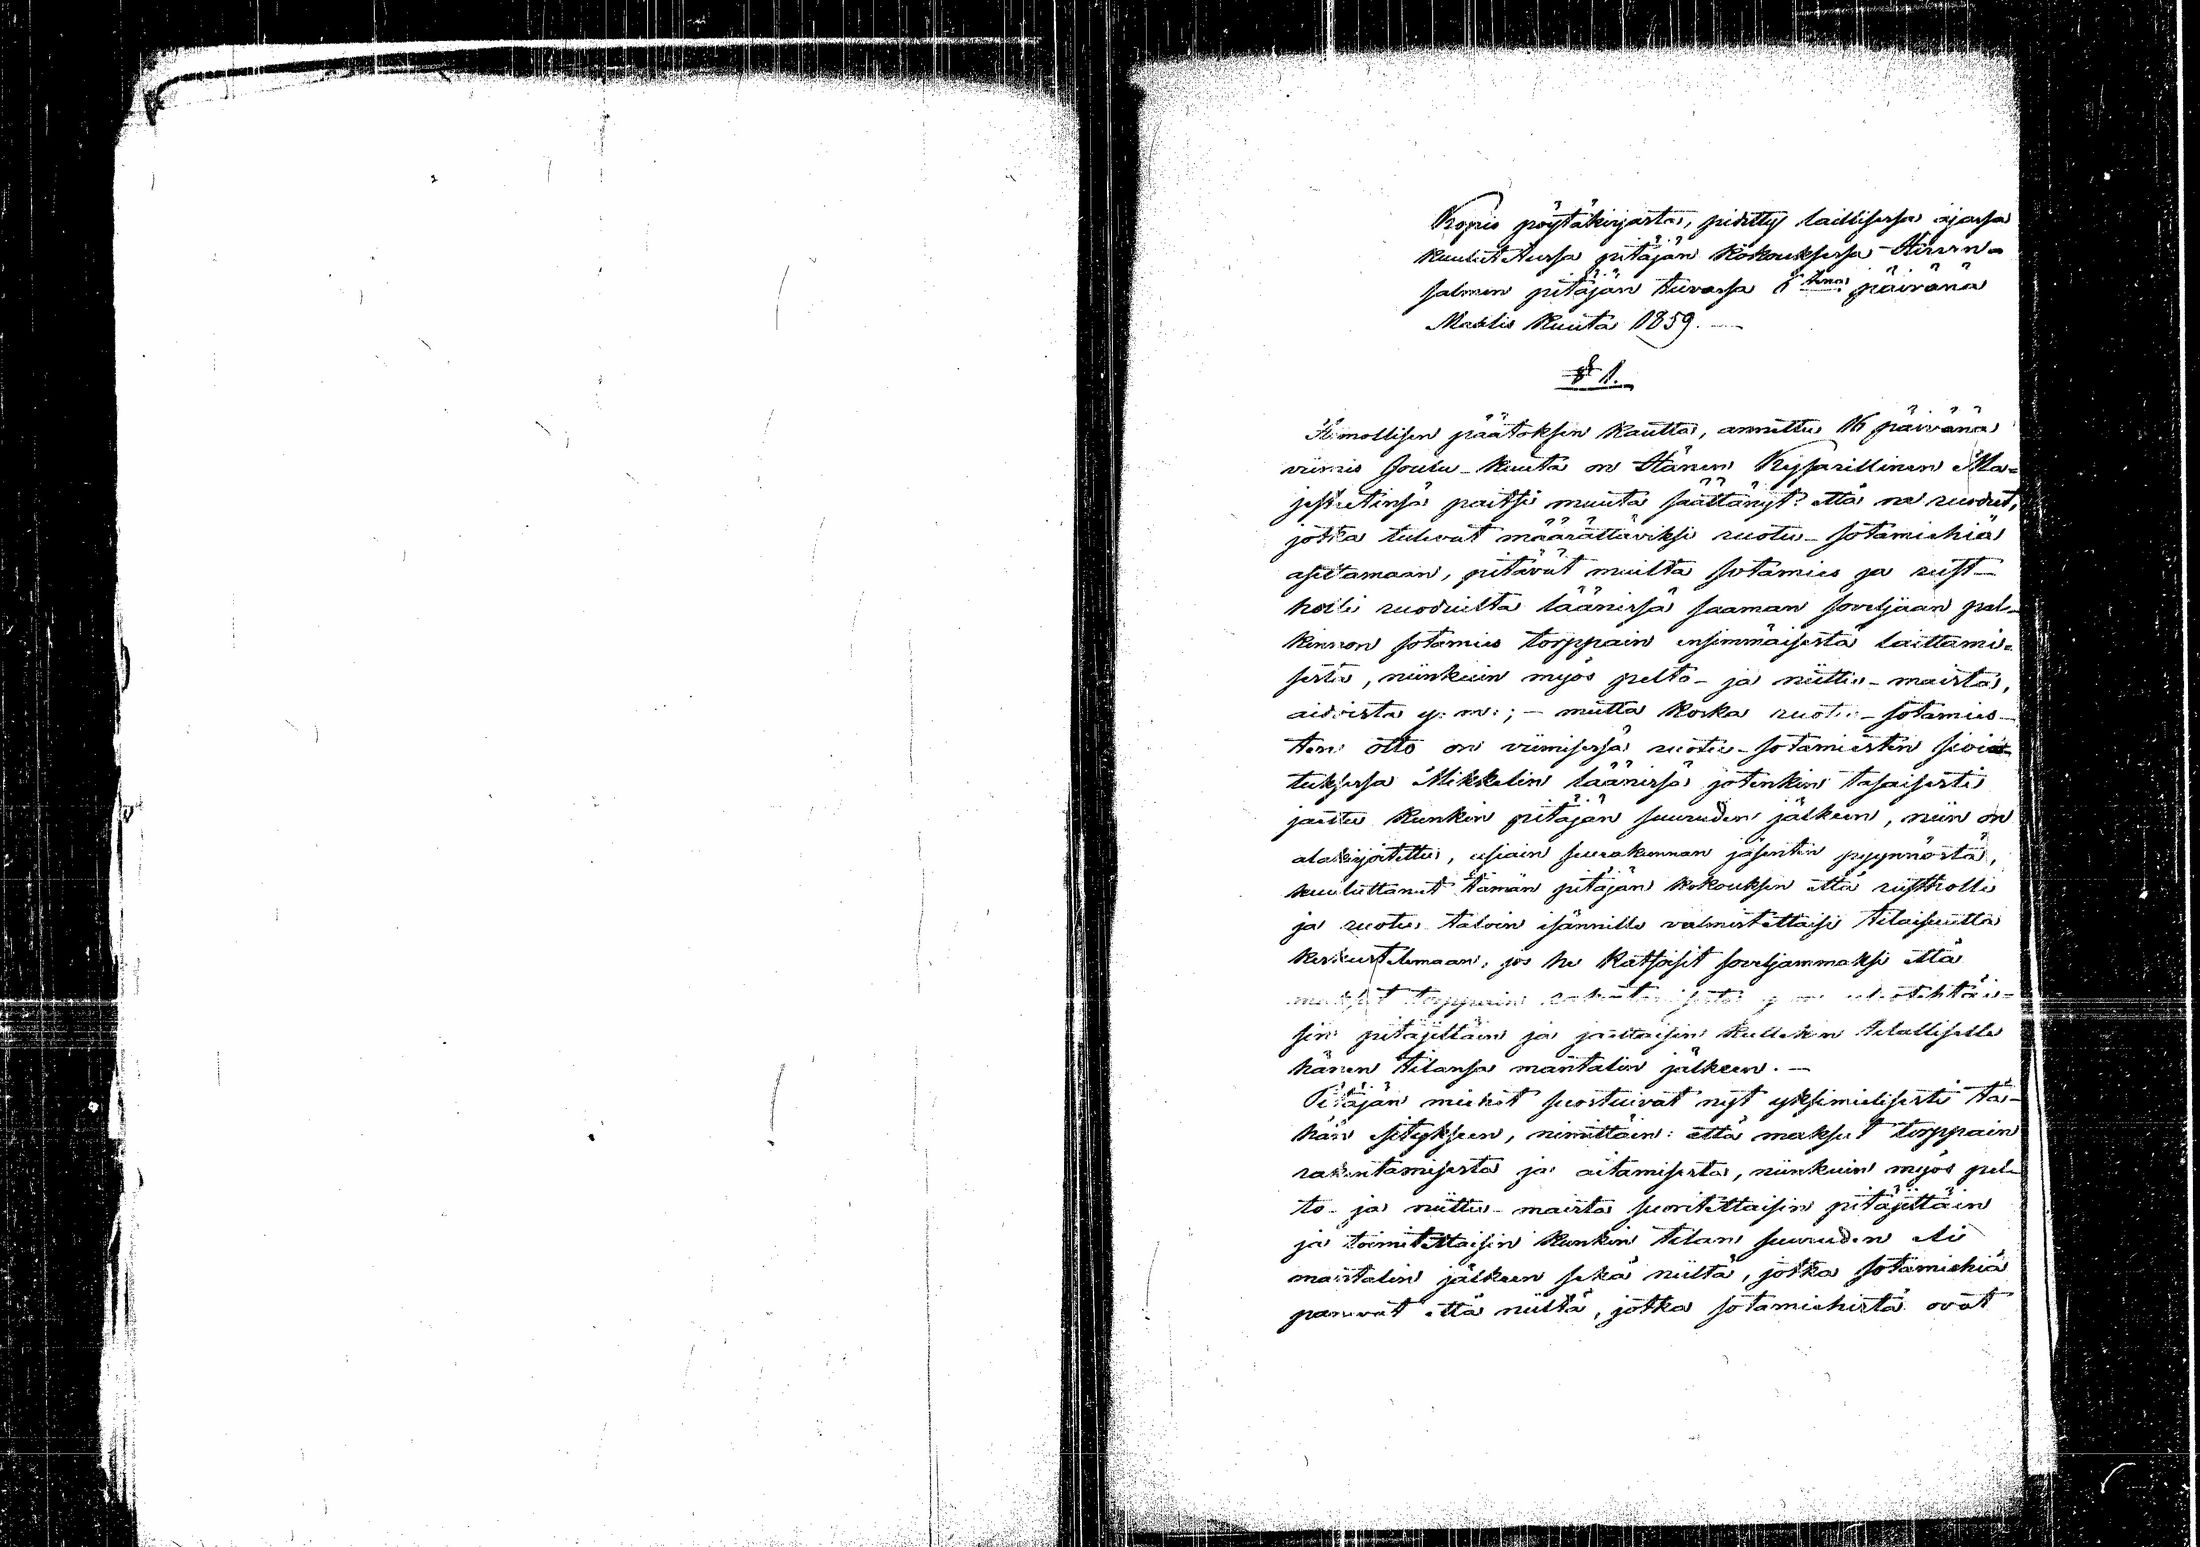 Kopio pöytäkirjasta, pidetty laillisessa ajassa
kuulutetussa pitäjän kokouksessa Hirven-
salmen pitäjän tuvassa 6tena päivänä
Maalis kuuta 1859.
§ 1.
Armollisen päätöksen kautta, annettu 16 päivänä
viimis Joulu-kuuta on Hänen Keisarillinen Ma-
jesteetinsa paitsi muuta säättänyt: että ne ruodut,
jotka tulevat määrättäviksi ruotu-sotamiehiä
asettamaan, pitävät muilta sotamies ja rust-
holli ruoduilta läänissä saaman soveljaan pal-
kinnon sotamies torppain ensimmäisestä laittami-
sesta, niinkuin myös pelto- ja niittu-maista,
aidoista y. m.; – mutta koska ruotu-sotamies-
ten otto on viimisessä ruotu-sotamiesten
tuksessa Mikkelin läänissä jotenkin tasaisesti
jaettu kunkin pitäjän suuruden jälkeen, niin on
alakirjoitettu, usiain seurakunnan jäsenten pyynnöstä,
kuuluttanut tämän pitäjän kokouksen että rustholli
ja ruotu taloin isännille valmistettaisi tilaisuutta
keskustelemaan, jos he katsoisit soveljammaksi että
maksut torppain rakentamisesta y. m. ulostehtäi-
sin pitäjittäin ja jaettaisin kullekin tilalliselle
hänen tilansa mantalin jälkeen. –
Pitäjän miehet suostuivat nyt yksimielisesti tä-
hän esitykseen, nimittäin: että maksut torppain
rakentamisesta ja aitamisesta, niinkuin myös pel-
to- ja niittu-maista suoritettaisin pitäjittäin
ja toimitettaisin kunkin tilan suuruden eli
mantalin jälkeen sekä niiltä, jotka sotamiehiä
panevat että niiltä, jotka sotamiehistä ovat